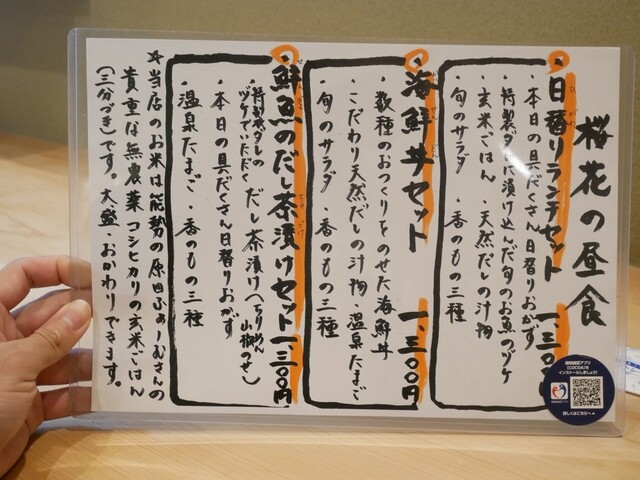 桜花の昼食
日替りランチセット 一、三〇〇
・本日の具だくさん日替りおかず
・特製ダレに漬け込んだ旬のお魚のヅケ
・玄米ごはん ・天然だしの汁物
・旬のサラダ ・香のもの三種
海鮮丼セット 一、三〇〇円
・数種のおつくりをのせた海鮮丼
・こだわり天然だしの汁物・温泉たまご
・旬のサラダ ・香のもの三種
鮮魚のだし茶漬けセット 一、三〇〇円
・特製ダレのヅケでいただく だし茶漬け(ちりめん山椒のせ)
・本日の具だくさん日替りおかず
・温泉たまご ・香のもの三種
☆当店のお米は能勢の原田ふぁーむさんの
貴重な無農薬コシヒカリの玄米ごはん
(三分づき)です。大盛・おかわりできます。
接触確認アプリ
(COCOA)を
インストールしましょう!
詳しくはこちらへ